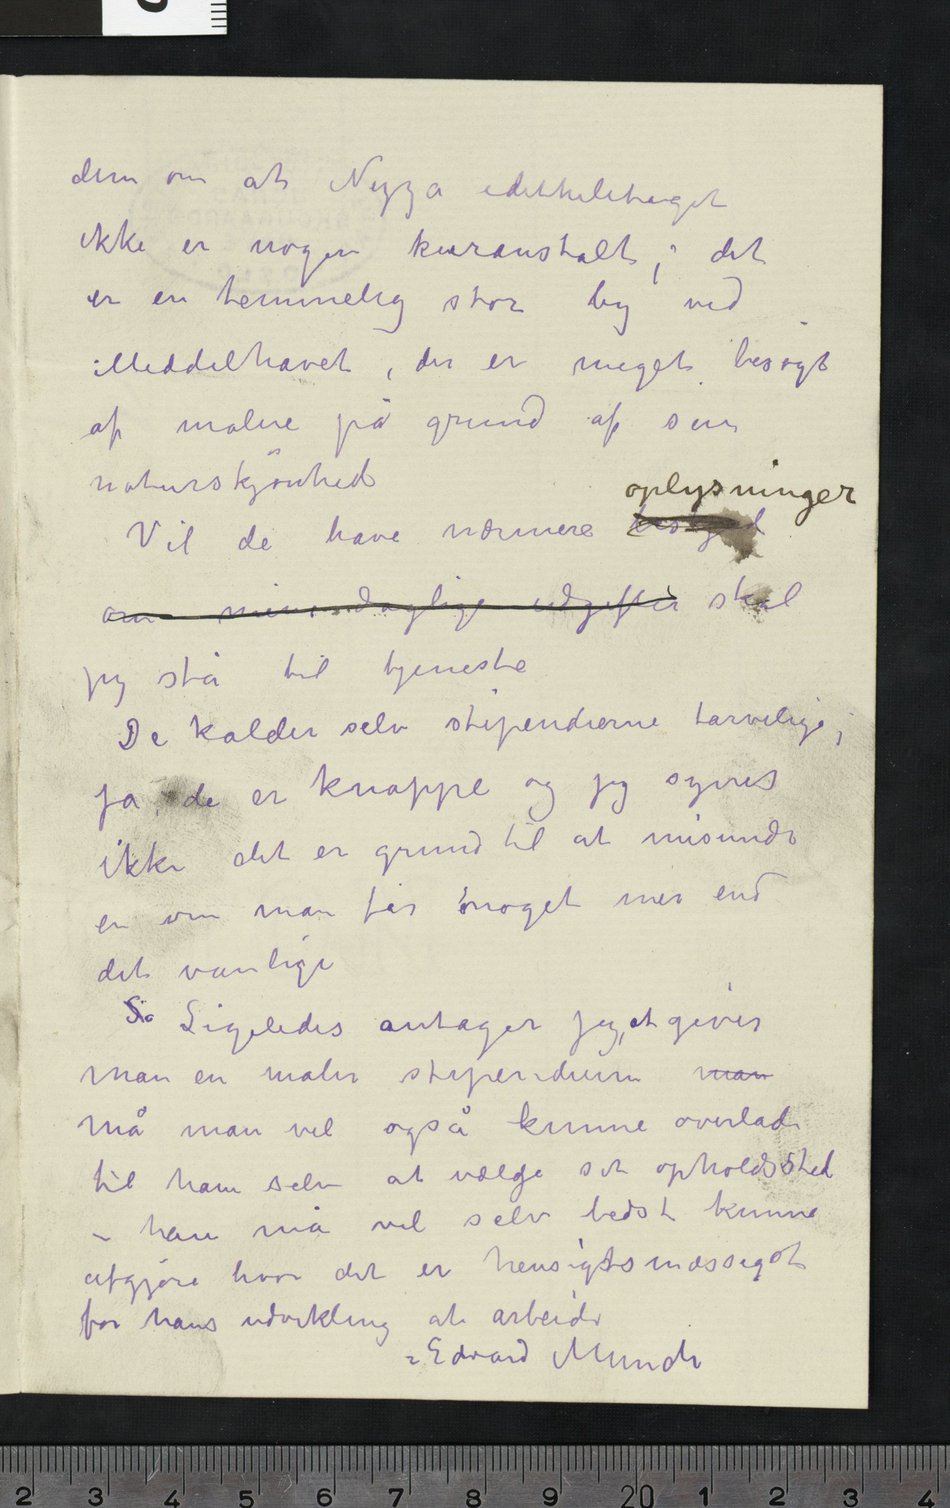 dem om at Nizza idetheletaget
ikke er nogen kuranstalt; det
er en temmelig stor by ved
Middelhavet, der er meget besøgt
af malere på grund af sin
naturskjønhed
oplysninger
Vil de have nærmere besked
om mine daglige udgifter skal
jeg stå til tjeneste
De kalder selv stipendierne tarvelige;
ja, de er knappe og jeg synes
ikke det er grund til at misunde
en om man får noget mer end
det vanlige
Så Ligeledes antager jeg, at giver
man en maler stipendium man
må man vel også kunne overlade
til ham selv at vælge sit opholdssted
– han må vel selv bedst kunne
afgjøre hvor det er hensigtsmæssigst
for hans udvikling at arbeide
Edvard Munch
2 3 4 5 6 7 8 9 20 1 2 3 4